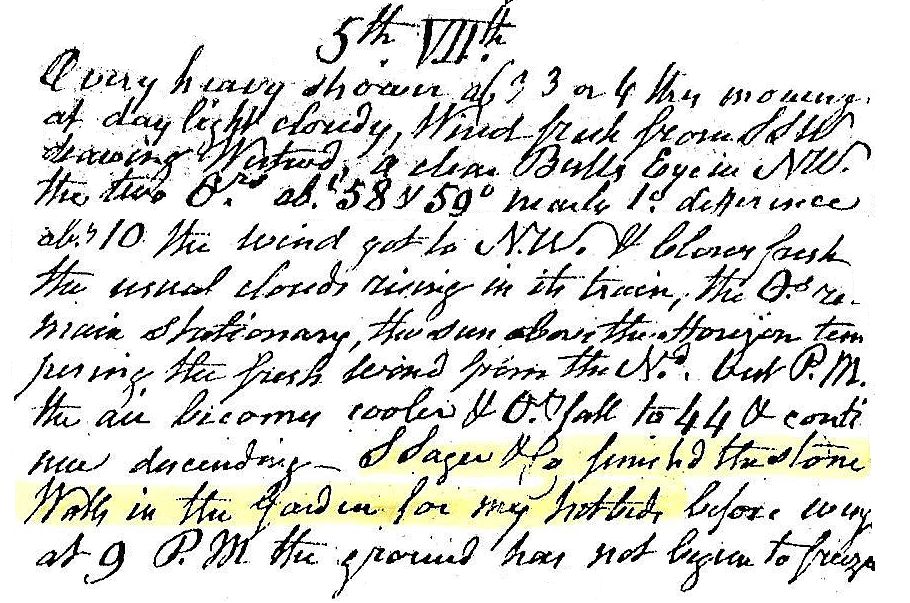 5th VIIth
A very heavy shower at 3 or 4 this morning
at day light cloudy, Wind fresh from SSW
drawing Westwd, a clear Bulls Eye in NW.
the two Ors. abt. 58 & 59° nearly 1°. difference
abt 10 the wind got to N.W. & blows fresh
the usual clouds rising in its train, the Ors re-
main stationary, the sun above the Horizon tem
pering the fresh wind from the Nd. but P.M.
the air becomes cooler & Or. fall to 44 & conti
nue descending — S Sager & Co finished the stone
Walls in the Garden for my hotbeds before
at 9 P.M the ground has not begun to freeze